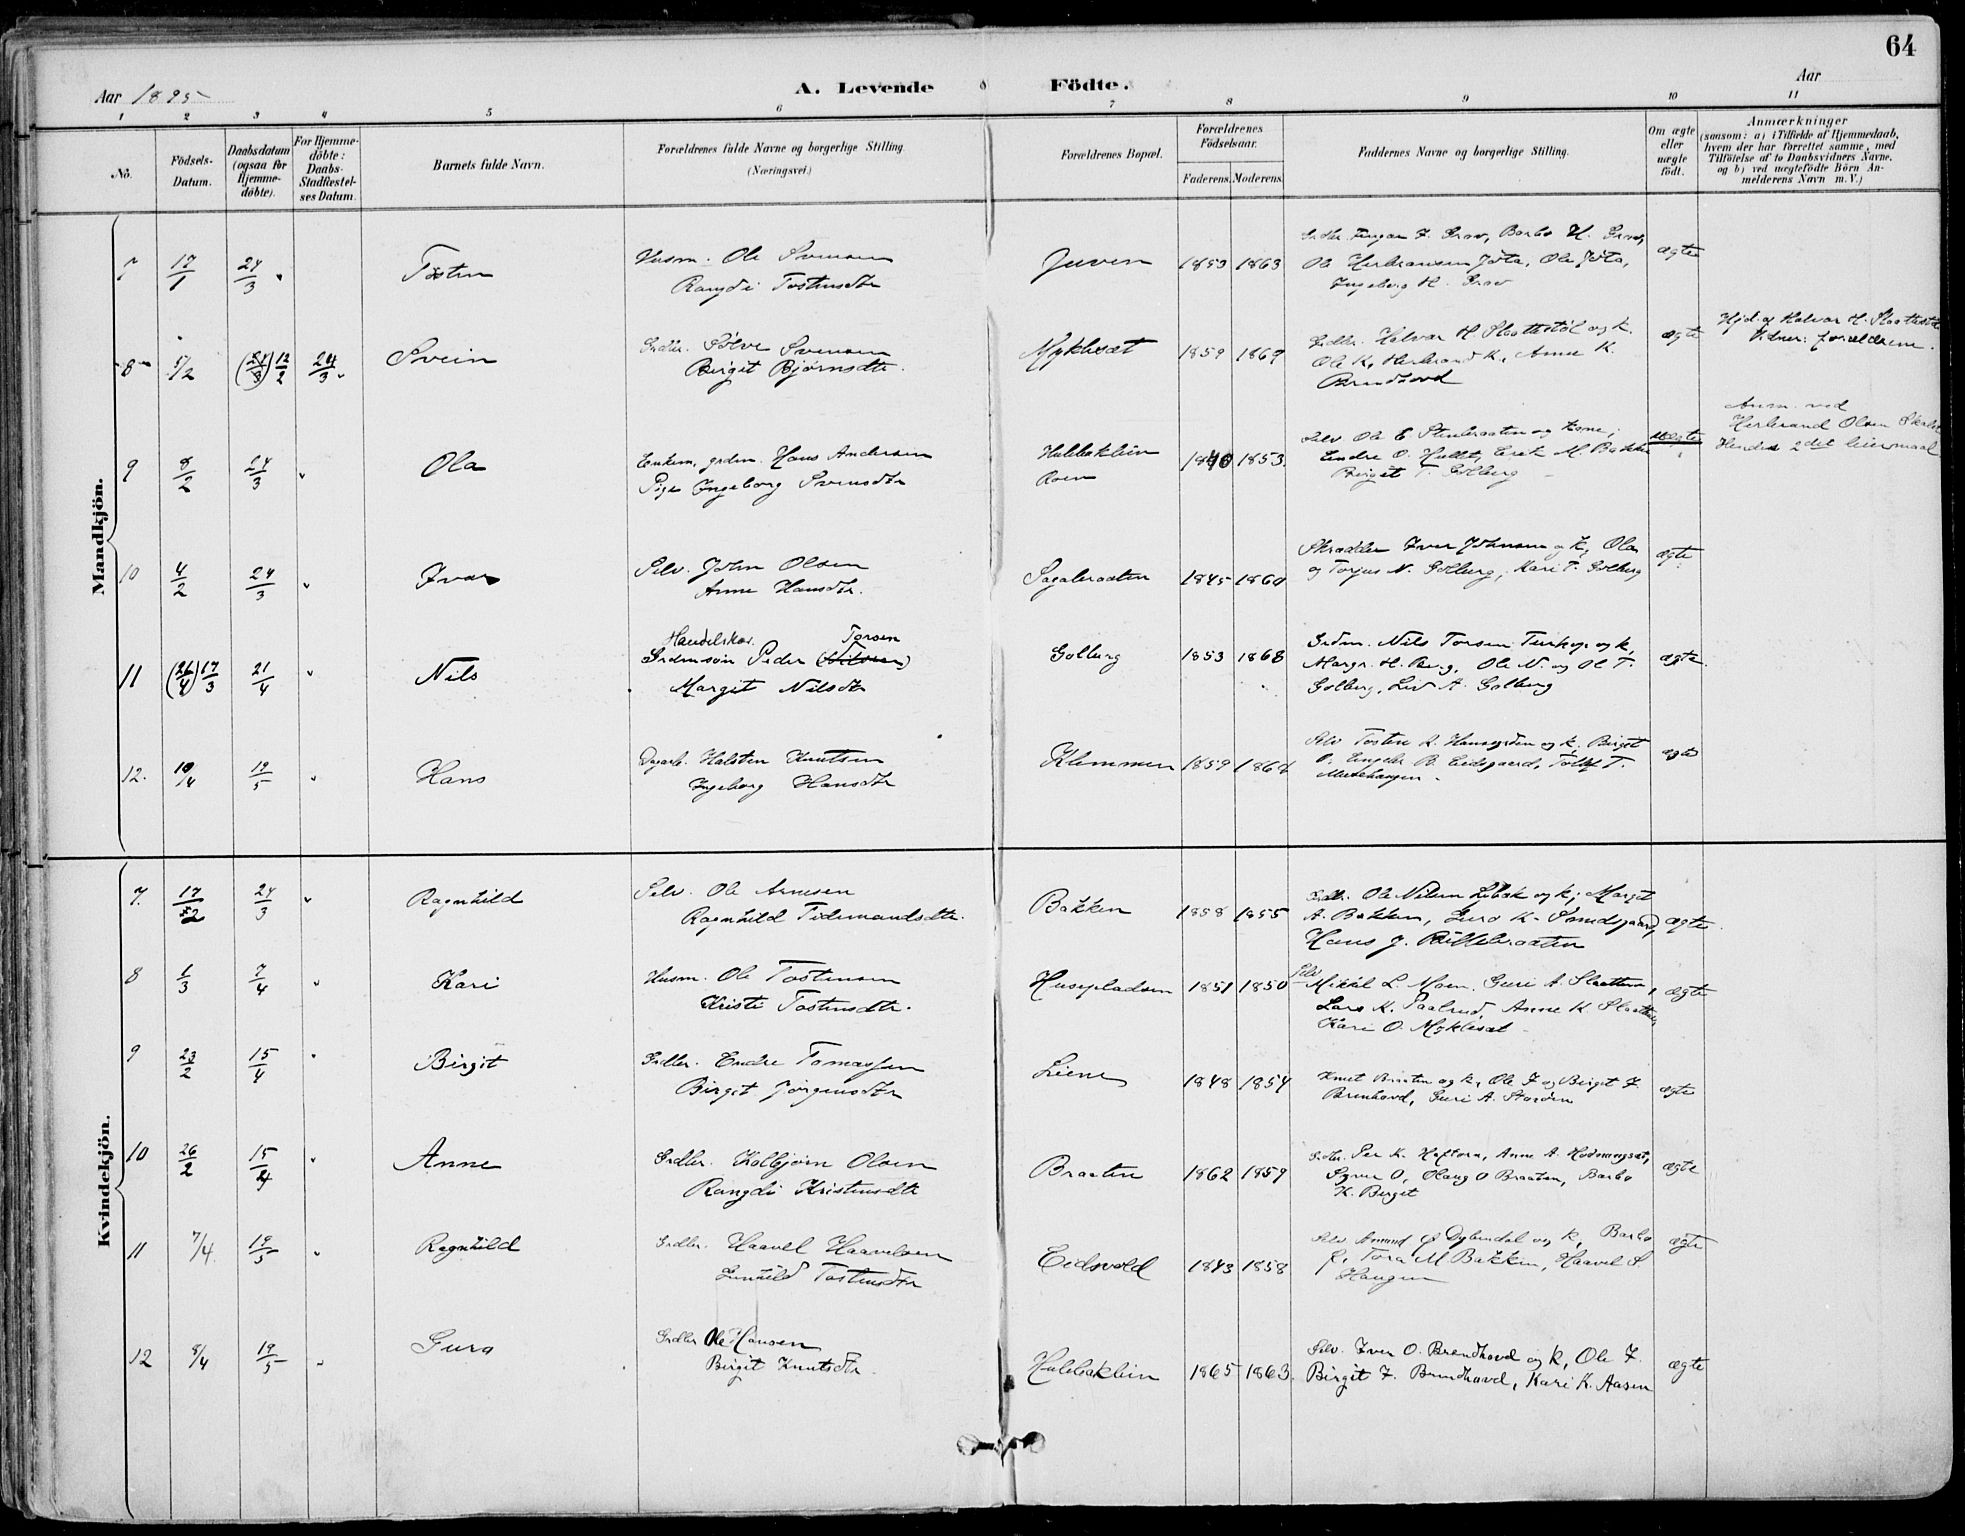 64
Aar 1895
A. Levende Födte.
Aar
1 2 3 4 5 6 7 8 9 10 11
No.
Födsels-Datum.
Daabsdatum (ogsaa for Hjemme-döbte).
For Hjemme-döbte: Daabs-Stadfæstel-ses Datum.
Barnets fulde Navn.
Forældrenes fulde Navne og borgerlige Stilling.
(Næringsvei.)
Forældrenes Bopæl.
Forældrenes Födselsaar.
Faderens. Moderens.
Faddernes Navne og borgerlige Stilling.
Om ægte eller uægte födt.
Anmærkninger
(saasom: a) i Tilfælde af Hjemmedaab,
hvem der har forrettet samme, med
Tilföielse af to Daabsvidners Navne,
og b) ved uægtefödte Börn An-
melderens Navn m. V.)
Mandkjön.
7 17/1 24/3 " Tosten
Husm. Ole Svensen
Rangdi Tostensdtr
Juven 1853 1863
Barbo H. Grav,
Ole Herbransen
Ingeborg H. Grav
ægte
8 5/2 (24/3) 12/2 24/3 " Svein
Grdbr. Sölve Svensen
Birgit Björnsdtr.
Myklesæt 1859 1869
Grdbr. Halvor H. Slaattestöl og k.
Ole K, Herbrand K, Anne K.
Brendhovd
ægte
Hjd. af Halvor H. Slaattestöl
Vidner: forældrene.
9 8/2 24/3 " Ola
Enkem., grdm. Hans Andersen
Pige Ingeborg Svensdtr
Hulbaklien
Roen
1840 1853
Selv. Ole E Stenbraaten og kone,
Endre O. M. Bakken
Birgit T. Golberg
uægte
Anm. ved
Herbrand Olsen
Hendes 2det leiermaal
10 4/2 24/3 " Ivar
Selv. John Olsen
Anne Hansdtr.
Sagabraaten 1845 1860
Skrædder Iver Johnsen og k, Ola
og Torjus N. Golberg, Kari T. Golberg
ægte
11 (26/4) 17/3 21/4 " Nils
Handelskar. Torsen
Grdmsön Peder (Nilsen)
Margit Nilsdtr
Golberg 1853 1868
Grdm. Nils Torsen og k,
Margr. H. Berg, Ole N. og Ol T.
Golberg, Liv A. Golberg
ægte.
12. 10/4 19/5 " Hans
Dagarb. Halsten Knutsen
Ingeborg Hansdtr
Klemmen 1859 1864
Selv Tosten og k, Birgit
Eidsgaard, T.
ægte
Kvindekjön.
7. 17/2 24/3 " Ragnhild
Selv. Ole Arnesen
Ragnhild Tidemandsdtr.
Bakken 1858 1855
Grdbr. Ole Nilsen og k; Margit
A. Bakken, Guro K.
Hans J.
ægte.
8 1/3 7/4 " Kari
Husm. Ole Tostensen
Kristi Tostensdtr.
Husepladsen 1851 1850
Selv
Mikkel L. Moen. Guri A. Slaatten,
Lars K. Paalrud, Anne K. Slaatten,
Kari O. Myklesæt
ægte
9 23/2 15/4 " Birgit
Grdbr. Endre Tomassen
Birgit Jörgensdtr
Liene 1848 1854
Knut Braaten og k, Ole I og Birgit I.
Brenhovd, Guri A.
ægte
10 26/2 15/4 " Anne
Grdbr. Kolbjörn Olsen
Rangdi Kristensdtr
Braaten 1862 1859
Grdbr. Per K. Anne A.
O, Olaug O Braaten, Barbo
K. Berget
ægte
11 7/4 19/5 " Ragnhild
Grdbr. Haavel Haavelsen
Gunhild Tostensdtr
Eidsvold 1843 1858
Selv og k, Barbo
Tora M Bakken, Haavel S.
Haugen
ægte
12 8/4 19/5 " Guro
Grdbr Ole Hansen
Birgit Knutsdtr.
Hulebaklien 1865 1863.
Selv. Iver O. Brendhovd og k, Ole I.
Birgit I. Brendhovd, Kari K. Aasen
ægte